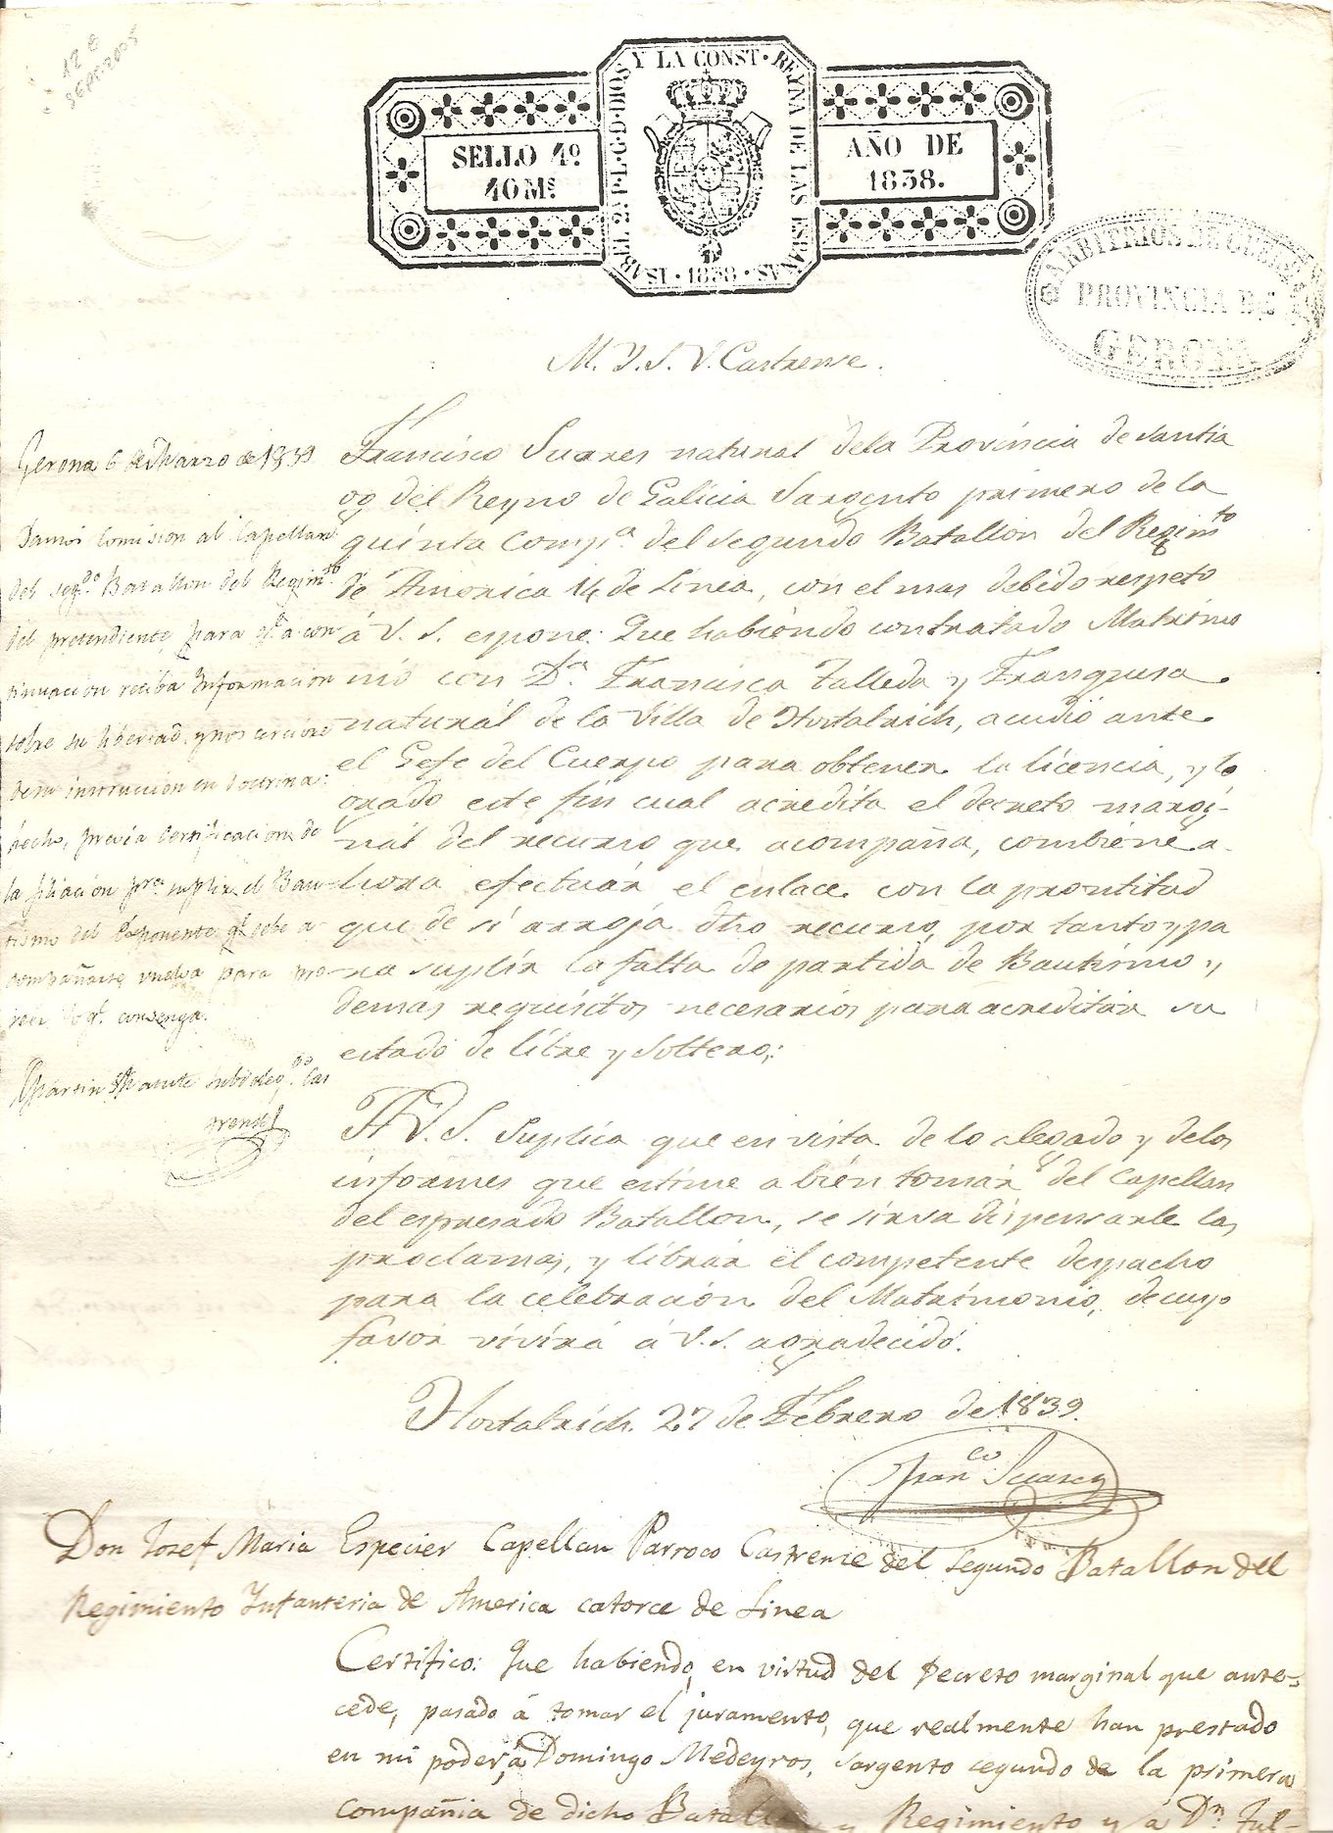 ISABEL 2ª P. L. G. D. DIOS Y LA CONST. REYNA DE LAS ESPAÑAS · 1838 ·
SELLO 4º
40 Mˢ
AÑO DE
1838.
ARBITRIOS DE
PROVINCIA DE
GERONA
M. Y. S. V. Castrense.
Gerona 6 de Marzo de 1839
Damos Comision al Capellan
del segᵈᵒ Batallon del Regimᵗᵒ
del pretendiente, para qᵉ á con
tinuacion reciba Informacion
sobre su libertad, y nos cerciore
de su instruccion en Doctrina:
hecho, previa Certificacion de
la filiacion pᵃ suplir el Bau
tismo del Exponente qᵉ debe a
compañarse, vuelva para pro
veer lo qᵉ convenga.
Martin Subdelegᵈᵒ Cas
trense
Francisco Suares natural dela Provincia de Santia
go del Reyno de Galicia Sargento primero de la
quinta Compᵃ del segundo Batallon del Regimᵗᵒ
de America 14 de Linea, con el mas debido respeto
á V. S. espone: Que habiendo contratado Matrimo
nio con Dᵃ Francisca Talleda y Franquesa
natural de la Villa de Hostalrich, acudió ante
el Gefe del Cuerpo para obtener la licencia, y lo
grado este fin cual acredita el decreto margi-
nal del recurso que acompaña, combiene a
hora efectuar el enlace con la prontitud
que de sí arroja dho recurso, por tanto y pa
ra suplir la falta de partida de Bautismo y
demas requisitos necesarios para acreditar su
estado de libre y soltero;
A V. S. Suplica que en vista de lo alegado y delos
informes que estime a bien tomar del Capellan
del espresado Batallon, se sirva dispensarle las
proclamas, y librar el competente despacho
para la celebracion del Matrimonio, de cuyo
favor vivirá á V. S. agradecido.
Hostalrich 27 de Febrero de 1839.
Franᶜᵒ Suares
Don Josef Maria Especier Capellan Parroco Castrense del Segundo Batallon del
Regimiento Infanteria de America catorce de Linea
Certifico: Que habiendo, en virtud del Decreto marginal que ante=
cede, pasado á tomar el juramento, que realmente han prestado
en mi poder, á Domingo Medeyros, Sargento segundo de la primera
Compañia de dicho Batallon y Regimiento y á Dⁿ Jul-